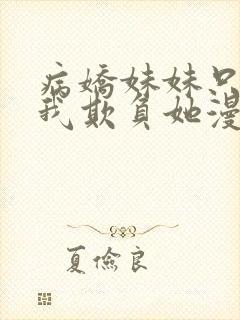 病嬌妹妹只
我欺負她漫
夏儉良